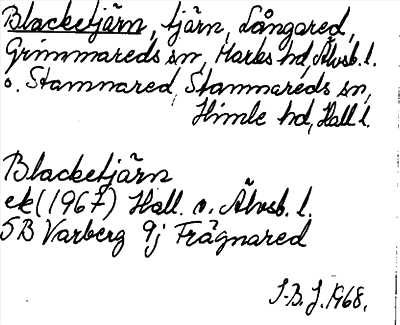 Blacketjärn, tjärn, Långared,
Grimmareds sn, Marks hd, Älvsb. l.
o. Stamnared, Stamnareds sn,
Himle hd, Hall l.
Blacketjärn
ek (1967) Hall. o. Älvsb. l.
5B Varberg 9j Frägnared
S-B. J. 1968.